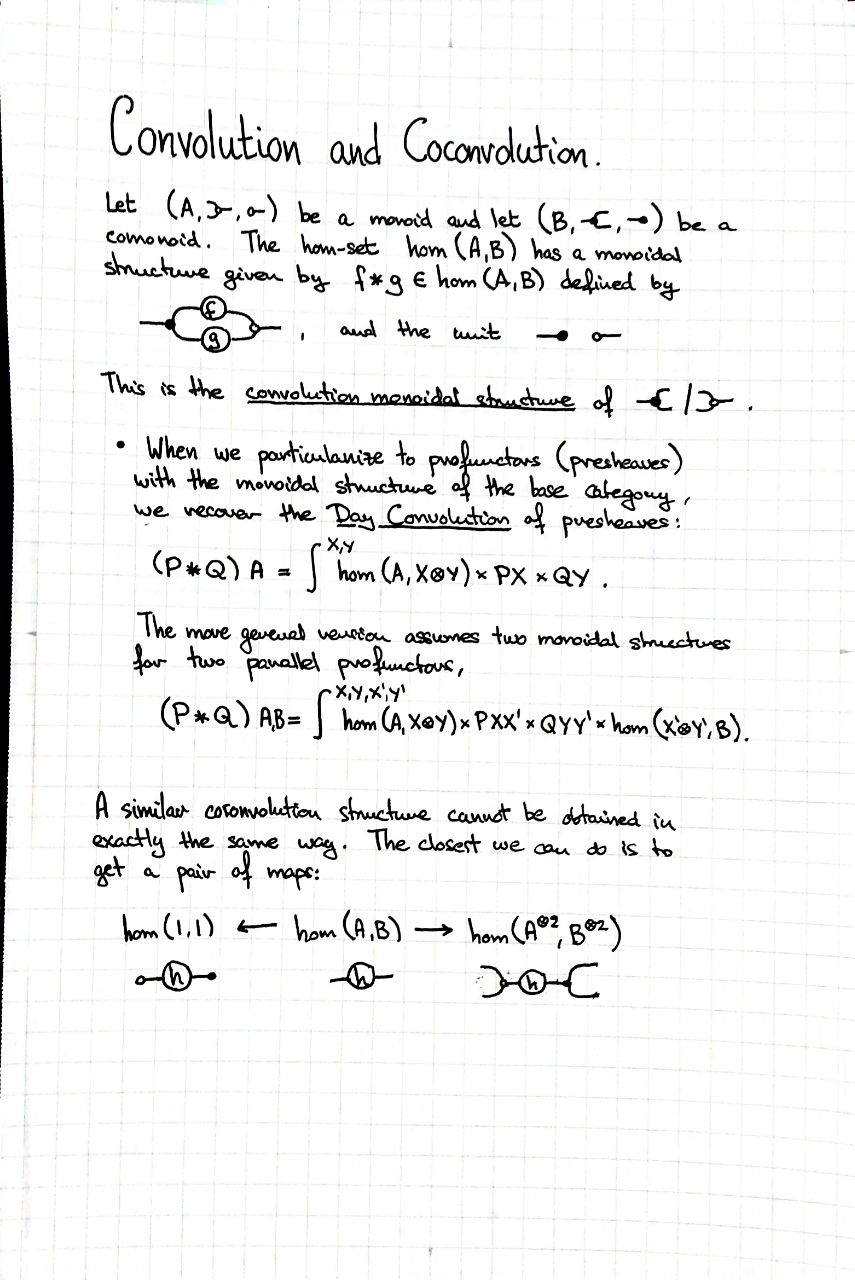 Convolution and Coconvolution.
Let (A, ⊃-, o-) be a monoid and let (B, -⊂, -•) be a
comonoid. The hom-set hom (A,B) has a monoidal
structure given by f*g ∈ hom (A,B) defined by
f g , and the unit -• o-
This is the convolution monoidal structure of -⊂ / ⊃- .
• When we particularize to profunctors (presheaves)
with the monoidal structure of the base category,
we recover the Day Convolution of presheaves:
(P*Q) A = ∫^{X,Y} hom (A, X⊗Y) × PX × QY .
The more general version assumes two monoidal structures
for two parallel profunctors,
(P*Q) A,B = ∫^{X,Y,X',Y'} hom (A, X⊗Y) × PXX' × QYY' × hom (X'⊗Y', B).
A similar coconvolution structure cannot be obtained in
exactly the same way. The closest we can do is to
get a pair of maps:
hom (1,1) ← hom (A,B) → hom (A^{⊗2}, B^{⊗2})
h h h